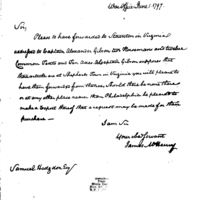 War Office June 1. 1797.
Sir,
Please to have forwarded to Staunton in Virginia
addressed to Captain Alexander Gibson ten Horsemans and twelve
Common Tents and for same
are at Shepherds Town in Virginia you will please to
have them forwarded from thence. Should there be none there
or at any other place nearer than Philadelphia be pleased to
make a report thereof that a request may be made for their
purchase —
I am Sir
Your Ob Servant
James McHenry
Samuel Hodgdon Esq